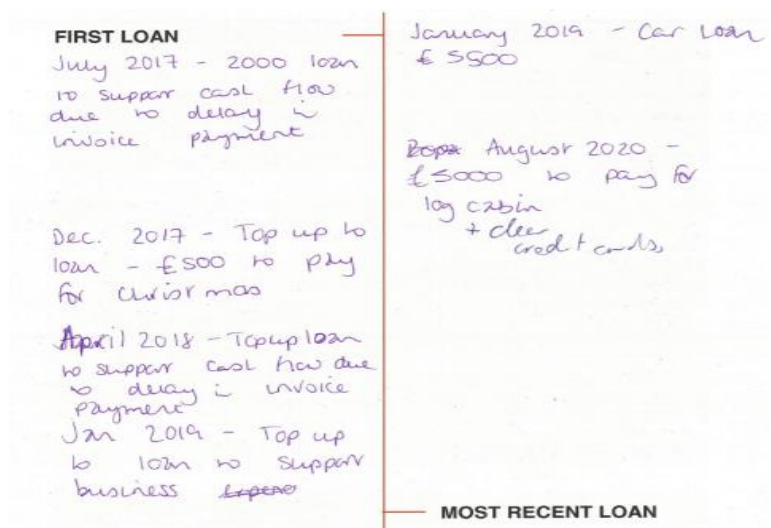 FIRST LOAN
July 2017 - 2000 loan
to support cash flow
due to delay in
invoice payment
Dec. 2017 - Top up to
loan - £500 to pay
for Christmas
April 2018 - Top up loan
to support cash flow due
to delay in invoice
payment
Jan 2019 - Top up
to loan to support
business
January 2019 - Car Loan
£5500
August 2020 -
£5000 to pay for
log cabin
+ clear
credit cards
MOST RECENT LOAN